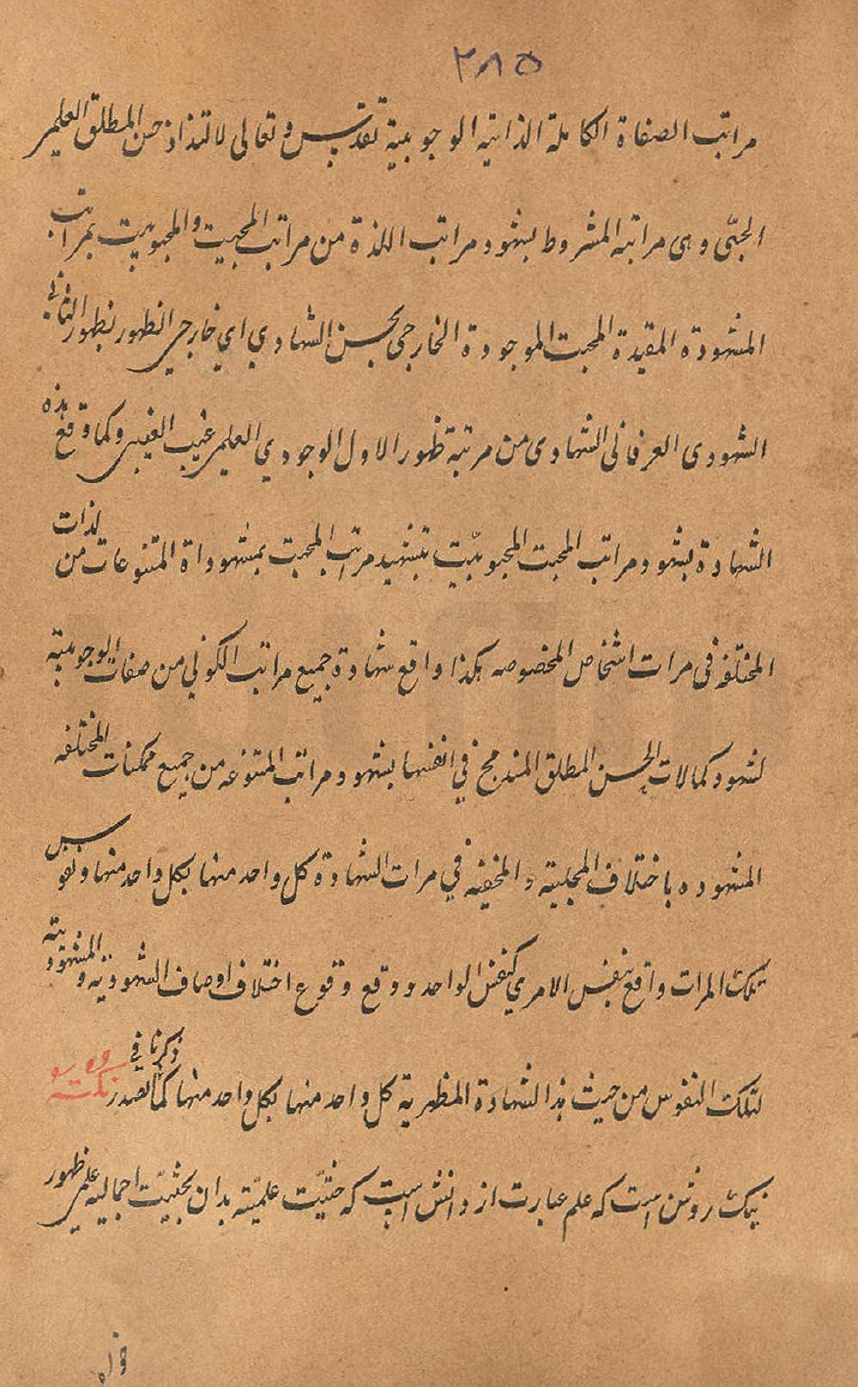 ٢٨٥
مراتب الصفاة الكاملة الذاتية الوجوبية تقدس وتعالى لالتذاذ حسن المطلق العلمي
الحبّى وهى مراتبه المشروط بشهود مراتب اللذة من مراتب المحبيت والمحبوبيت بمراتب
المشهودة المقيدة المحبت الموجودة الخارجى بحسن الشهادي اي خارجي الظهور بظهور الثاني
الشهودى العرفانى الشهادى من مرتبة ظهور الاول الوجودي العلمي غيب الغيبى وكما وقع هذه
الشهادة بشهود مراتب المحبت المحبوبيّت بتشهيد مراتب المحبت بمشهوداة المتنوعات من لذات
المختلفه فى مرات اشخاص المخصوصه هكذا واقع شهادة جميع مراتب الكونى من صفات الوجوبية
لشهود كمالات الحسن المطلق المندمج في انفسها بشهود مراتب المتنوعه من جميع ممكنات المختلفه
المشهوده باختلاف المجلية والمخفية في مرات الشهادة كل واحد منها بكل واحد منها ونفوس
تلك المرات واقع بنفس الامري كنفس الواحد ووقع وقوع اختلاف اوصاف الشهودية والمشهودية
لتلك النفوس من حيث هذا الشهادة المظهرية كل واحد منها بكل واحد منها كما ذكرنا في الصدر نكته
نيك روشن است كه علم عبارت از دانش است كه حثيّت علميّه بدان بحثيّت اجماليه علمى ظهور